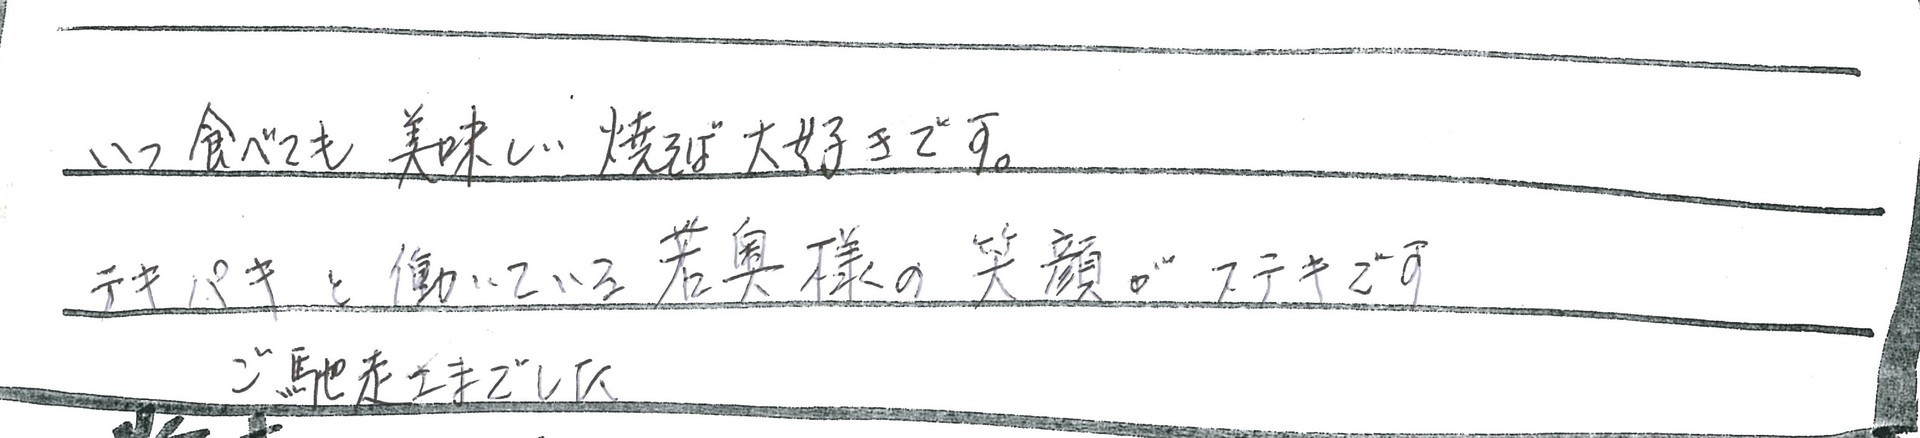 いつ食べても 美味しい 焼そば 大好きです。
テキパキと働いている 若奥様の 笑顔が ステキです
ご馳走さまでした